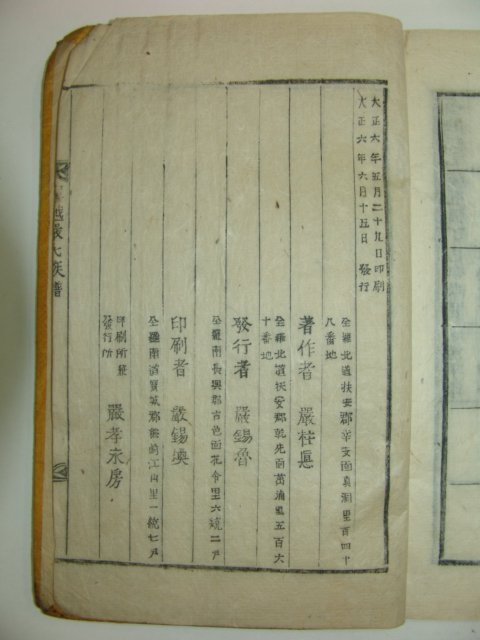 大正六年五月二十九日印刷
大正六年六月十五日 發行
全羅北道扶安郡 安面眞洞里百四十
八番地
著作者 嚴柱
全羅北道扶安郡乾先面萬浦里五百六
十番地
發行者 嚴錫魯
全羅南長興郡古邑面花令里六統二戶
印刷者 嚴錫
全羅南道寶城郡熊峙江山里一統七戶
印刷所兼
發行所 嚴孝永房
越嚴氏族譜